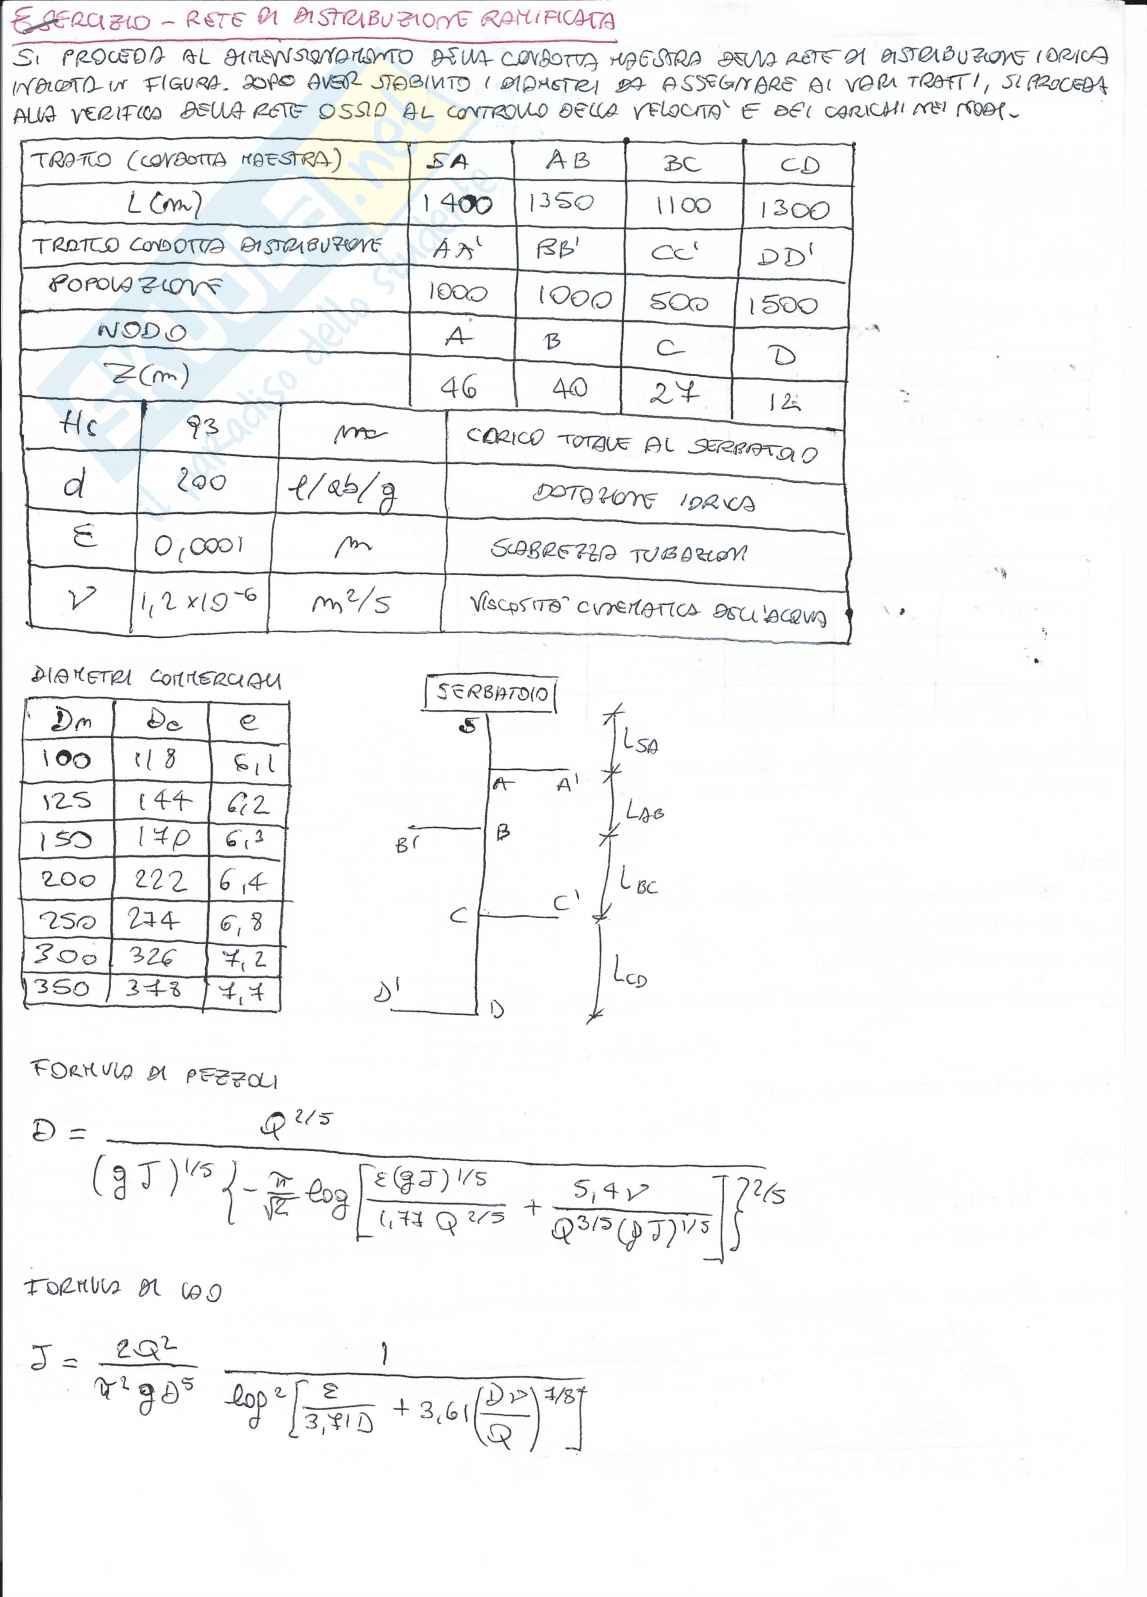 ESERCIZIO - RETE DI DISTRIBUZIONE RAMIFICATA
SI PROCEDA AL DIMENSIONAMENTO DELLA CONDOTTA MAESTRA DELLA RETE DI DISTRIBUZIONE IDRICA
INDICATA IN FIGURA. DOPO AVER STABILITO I DIAMETRI DA ASSEGNARE AI VARI TRATTI, SI PROCEDA
ALLA VERIFICA DELLA RETE OSSIA AL CONTROLLO DELLA VELOCITA' E DEI CARICHI NEI NODI.
TRATTO (CONDOTTA MAESTRA) SA AB BC CD
L(m) 1400 1350 1100 1300
TRATTO CONDOTTA DISTRIBUZIONE AA' BB' CC' DD'
POPOLAZIONE 1000 1000 500 1500
NODO A B C D
Z(m) 46 40 27 12
Hs 93 mc CARICO TOTALE AL SERBATOIO
d 200 l/ab/g DOTAZIONE IDRICA
ε 0,0001 m SCABREZZA TUBAZIONI
ν 1,2×10⁻⁶ m²/s VISCOSITA' CINEMATICA DELL'ACQUA
DIAMETRI COMMERCIALI
Dn De e
100 118 6,1
125 144 6,2
150 170 6,3
200 222 6,4
250 274 6,8
300 326 7,2
350 378 7,7
SERBATOIO
S
LSA
A A'
LAB
B' B
LBC
C C'
LCD
D' D
FORMULA DI PEZZOLI
D = Q^2/5 / (gJ)^1/5 {-π/√2 log[ε(gJ)^1/5 / 1,77 Q^2/5 + 5,4ν / Q^3/5 (gJ)^1/5]}^2/5
FORMULA DI CAO
J = 2Q² / π²gD⁵ 1 / log²[ε / 3,71D + 3,61(Dν / Q)^7/8]
ONLY
SKUOLA.net
il paradiso dello studente